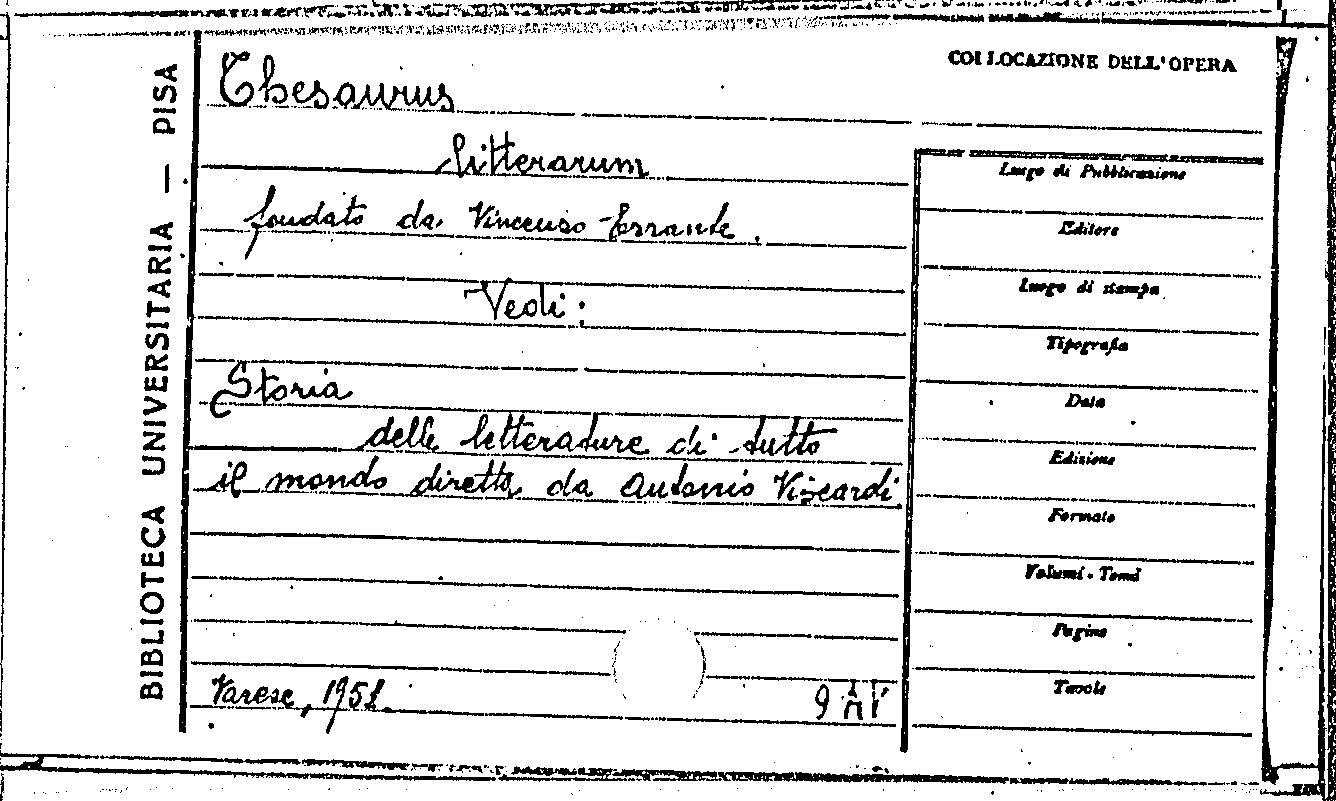 BIBLIOTECA UNIVERSITARIA — PISA
Thesaurus
litterarum
fondato da Vincenzo Errante.
Vedi:
Storia
delle letterature di tutto
il mondo diretta da Antonio Viscardi
Varese, 195
COLLOCAZIONE DELL'OPERA
Luogo di Pubblicazione
Editore
Luogo di stampa
Tipografia
Data
Edizione
Formato
Volumi - Tomi
Pagine
Tavole